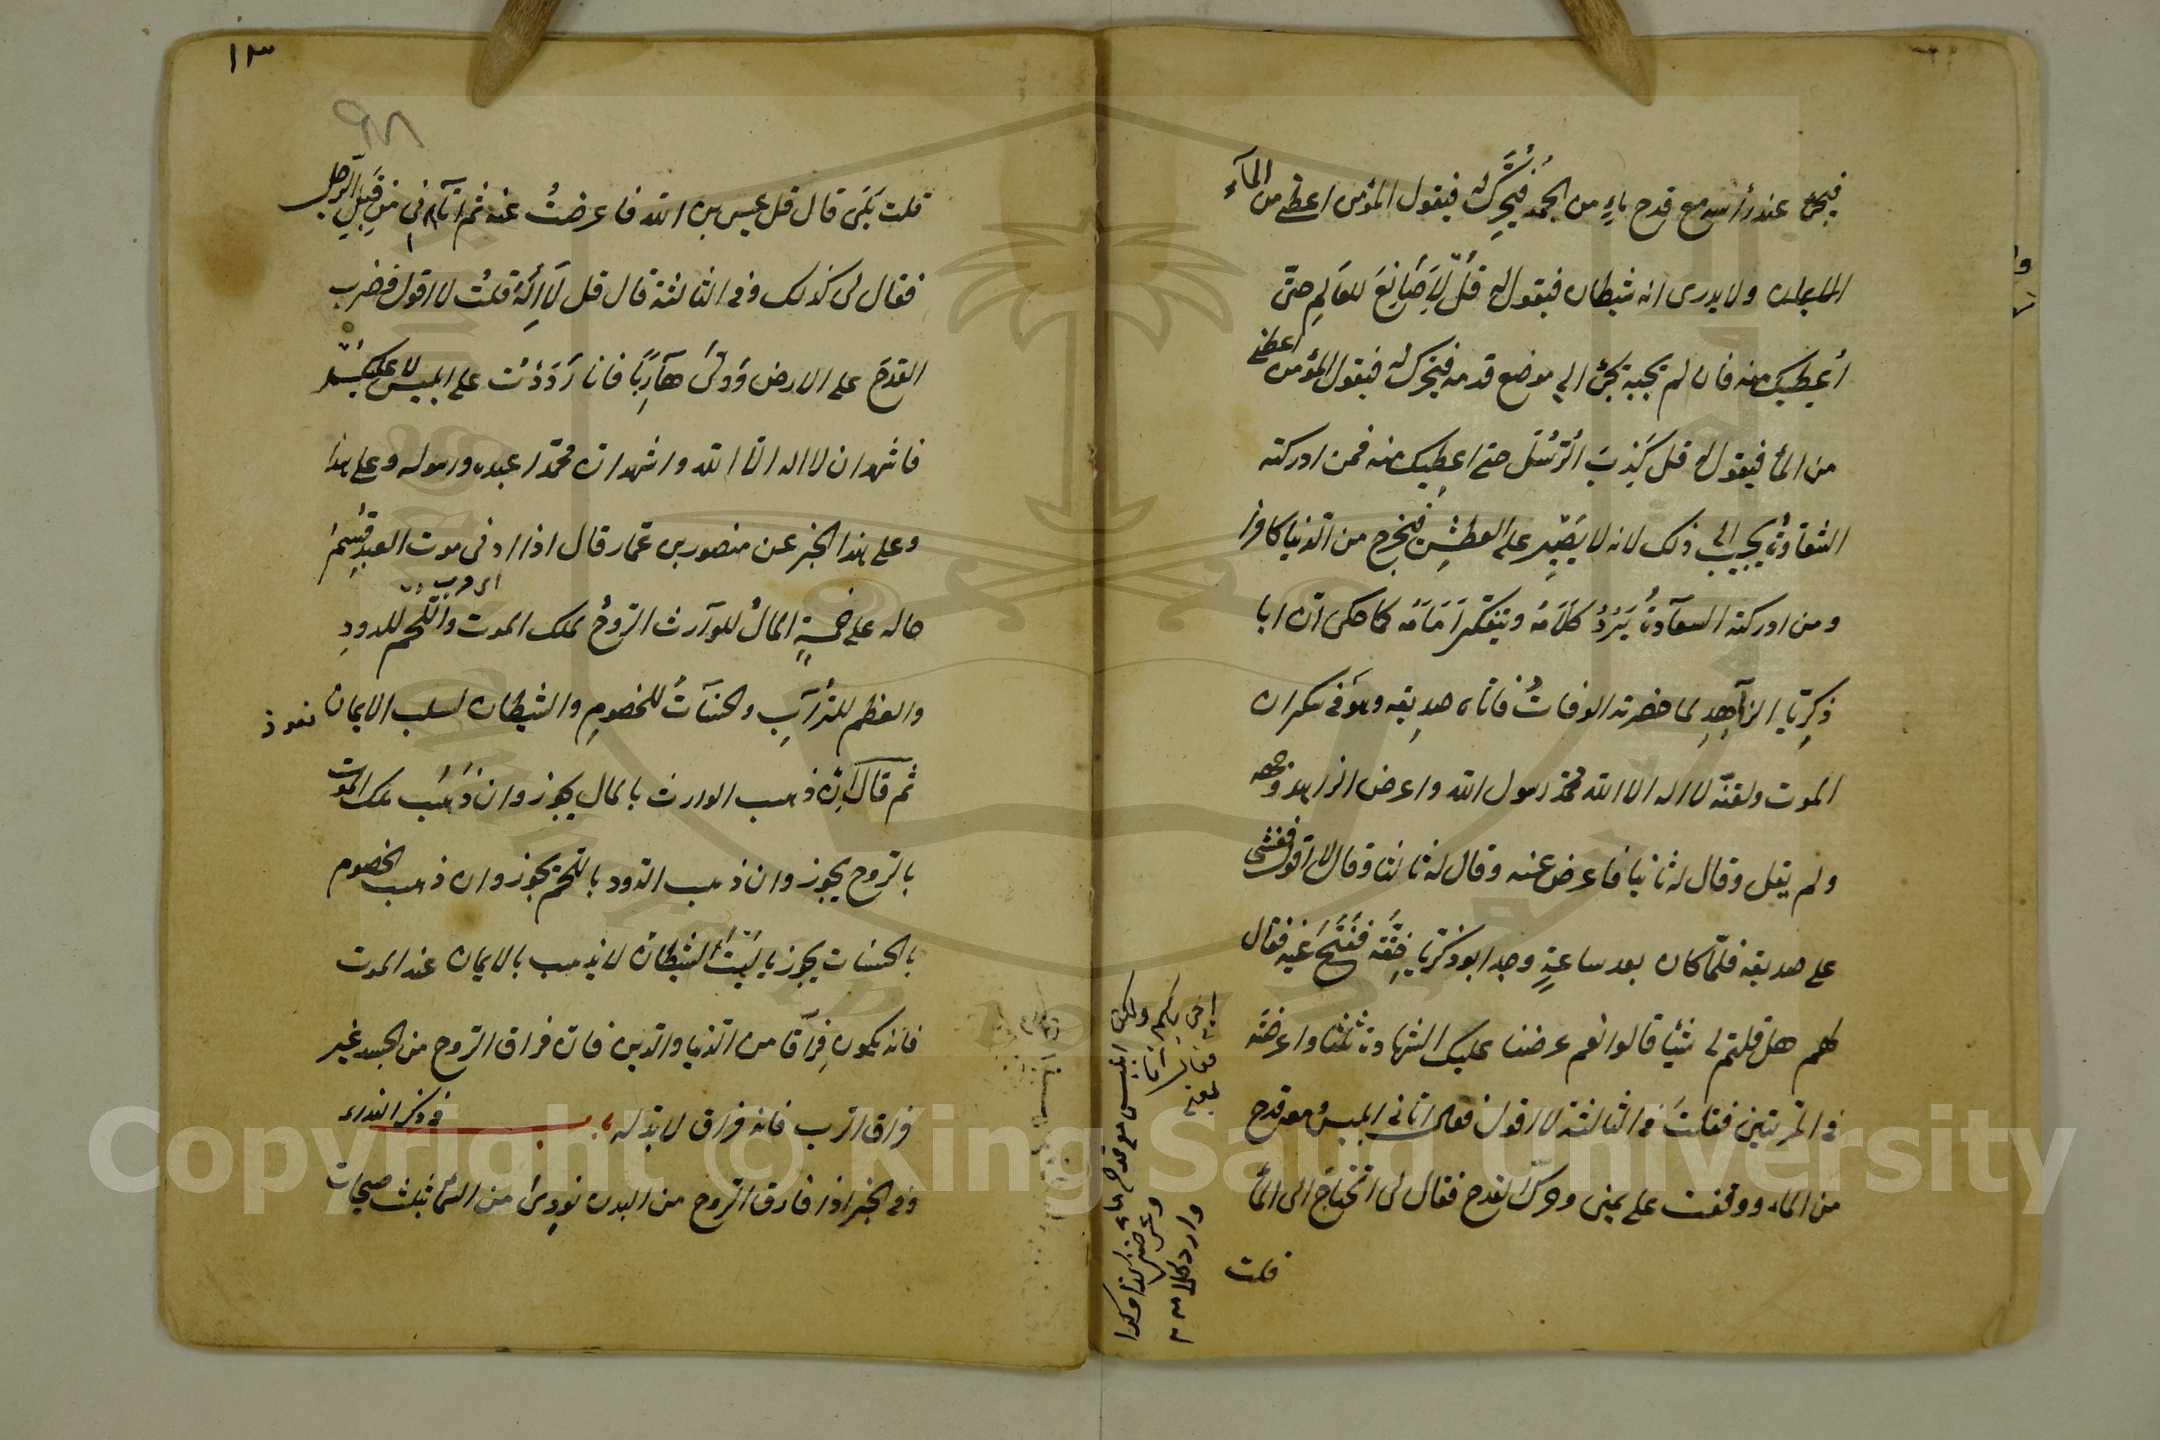 فيجئ عند رأسه مع قدح ماء من الجمد فيحرك له فيقول المؤمن اعطني من المآء
الملعبان ولا يدرى انه شيطان فيقول له قل لا صانع للعالم حتى
أعطيك منه فان لم يجبه يجئ الى موضع قدمه فيحرك له فيقول المؤمن اعطني
من المآ فيقول له قل كذب الرسل حتى اعطيك منه فمن ادركته
الشقاوة يجيب الى ذلك لانه لا يصبر على العطش فيخرج من الدنيا كافرا
ومن ادركته السعآدة يرد كلامه ويتفكر امامه كما حكى ان ابا
ذكريا الزاهد لما حضرته الوفات فاتاه صديقه وهو فى سكران
الموت ولقنه لا اله الا الله محمد رسول الله واعرض الزاهد وجهه
ولم يقل وقال له ثانيا فاعرض عنه وقال له ثالثا وقال لا اقول فغشى
على صديقه فلما كان بعد ساعة وجد ابو ذكريا خفة ففتح عينه فقال
لهم هل قلتم لى شيئا قالوا نعم عرضنا عليك الشهادة ثلثا واعرضت
فى المرتين فقلت فى الثالثة لا اقول فقال اتانى ابليس ومعه قدح
من الماء ووقفت على يمينى وحرك القدح فقال لى اتحتاج الى المآ
قلت
١٣
٩٨
قلت بلى قال قل عيسى بن الله فاعرضت عنه ثم اتانى من قبل الرجل
فقال لى كذلك وفى الثالثة قال قل لا اله قلت لا اقول فضرب
القدح على الارض وولى هاربا فانا رددت على ابليس لا عليكم
فاشهد ان لا اله الا الله واشهد ان محمدا عبده ورسوله وعلى هذا
وعلى هذا الخبر عن منصور بن عمار قال اذا دنى موت العبد قسم
حاله على خمسة المال للوارث الروح لملك الموت واللحم للدود
والعظم للتراب والحسنات للخصوم والشيطان لسلب الايمان نعوذ
ثم قال ان ذهب الوارث بالمال يجوز وان ذهب ملك الموت
بالروح يجوز وان ذهب الدود باللحم يجوز وان ذهب الخصوم
بالحسنات يجوز يا ليت الشيطان لا يذهب بالايمان عند الموت
فانه يكون فراقا من الدنيا والدين فان فراق الروح من الجسد غير
فراق الرب فانه فراق لا بد له باب فى ذكر النداء
وفى الخبر اذا فارق الروح من البدن نودى من السمآ بثلث صيحات
Copyright © King Saud University